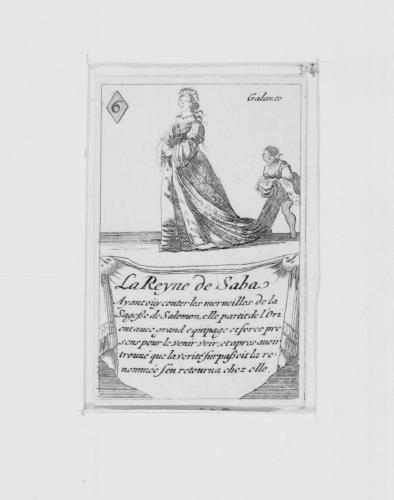 6
Galante
La Reyne de Saba
Ayant oüy conter les merueilles de la
Sagesse de Salomon, elle partit de l'Ori
ent auec grand equipage et force pre
sens pour le venir voir, et apres auoir
trouué que la verité surpassoit la re-
nommée s'en retourna chez elle.